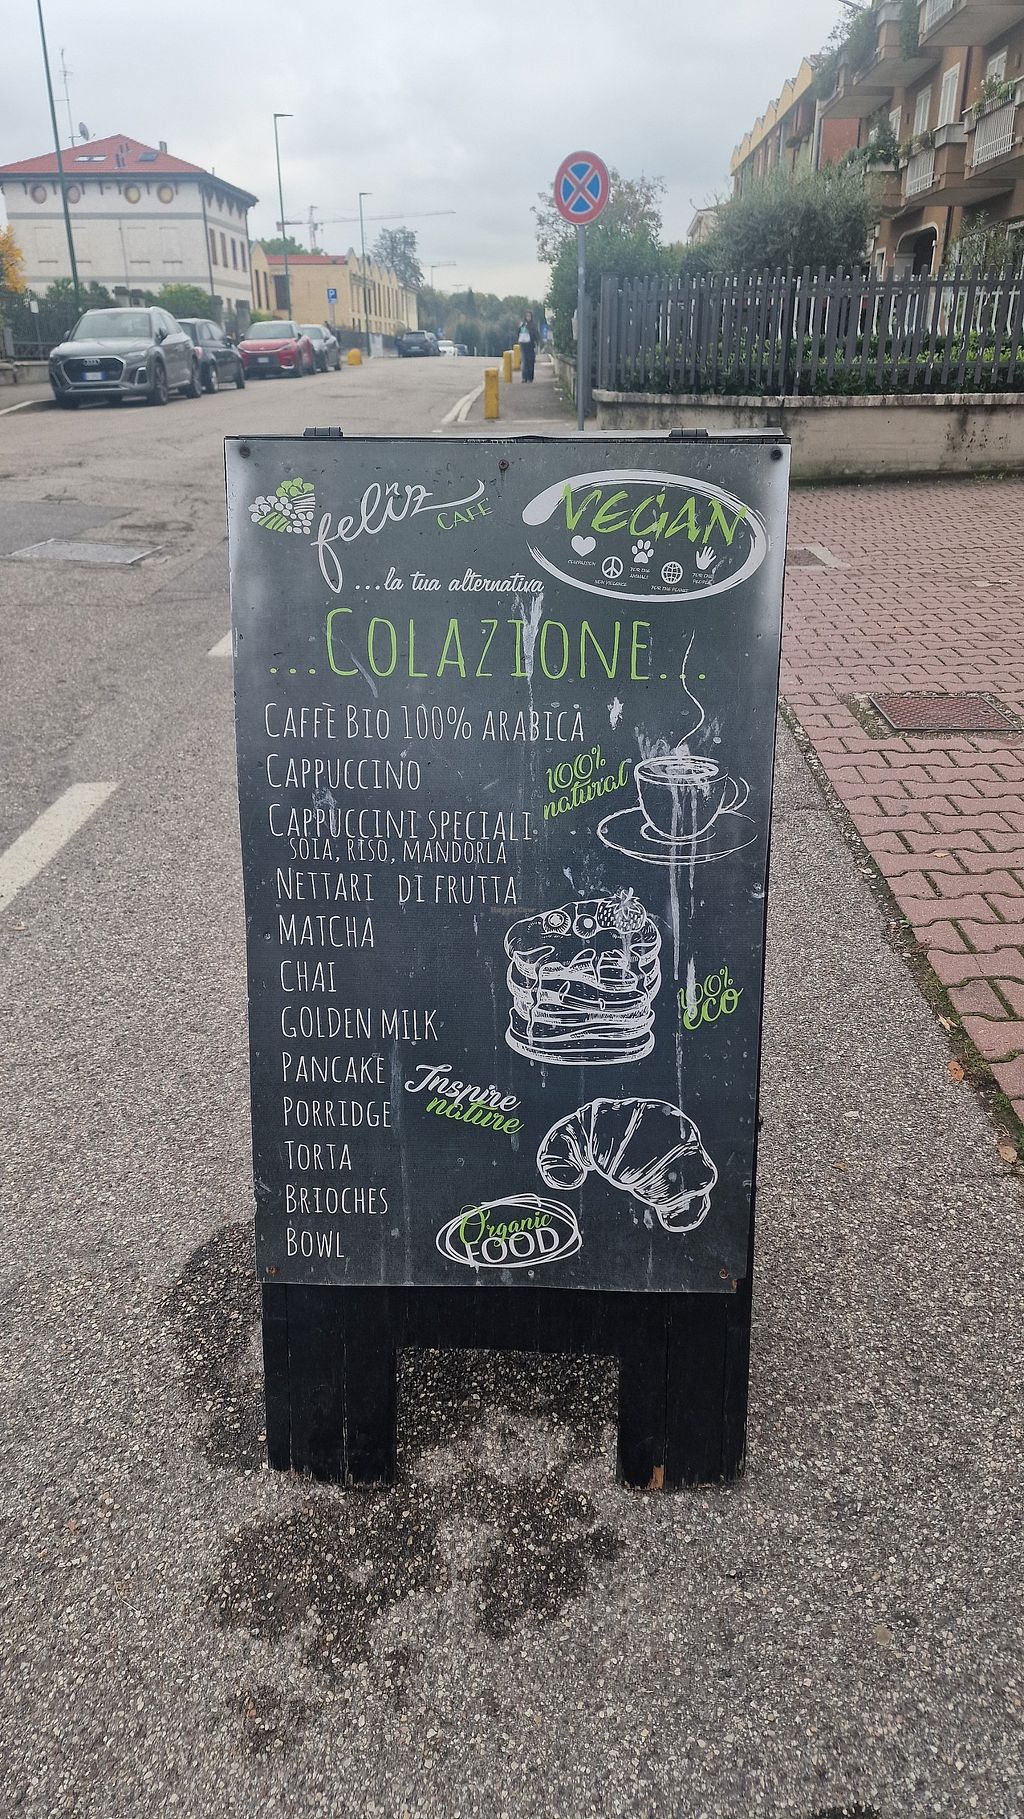 feliz CAFÈ
...la tua alternativa
VEGAN
COMPASSION
NON VIOLENCE
FOR THE ANIMALS
FOR THE PLANET
FOR THE PEOPLE
...COLAZIONE...
CAFFÈ BIO 100% ARABICA
CAPPUCCINO
100% natural
CAPPUCCINI SPECIALI
SOIA, RISO, MANDORLA
NETTARI DI FRUTTA
MATCHA
CHAI
100% eco
GOLDEN MILK
PANCAKE
Inspire nature
PORRIDGE
TORTA
BRIOCHES
Organic FOOD
BOWL
P
HappyCow